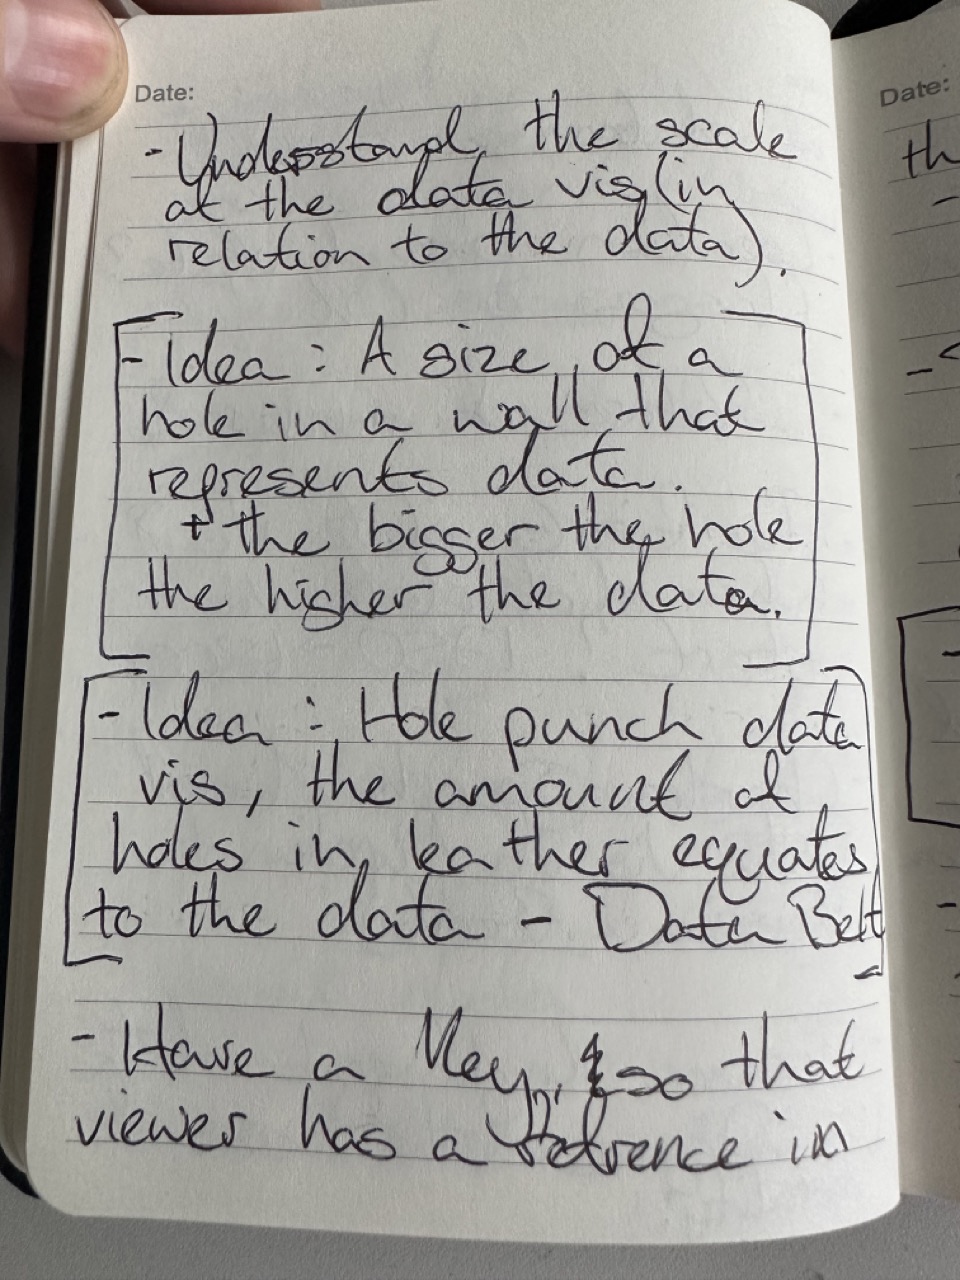 Date:
- Understand the scale
of the data vis (in
relation to the data).
- Idea : A size of a
hole in a wall that
represents data.
+ the bigger the hole
the higher the data.
- Idea : Hole punch data
vis, the amount of
holes in leather equates
to the data - Data Belt
- Have a Key, so that
viewer has a refrence in
Date:
th